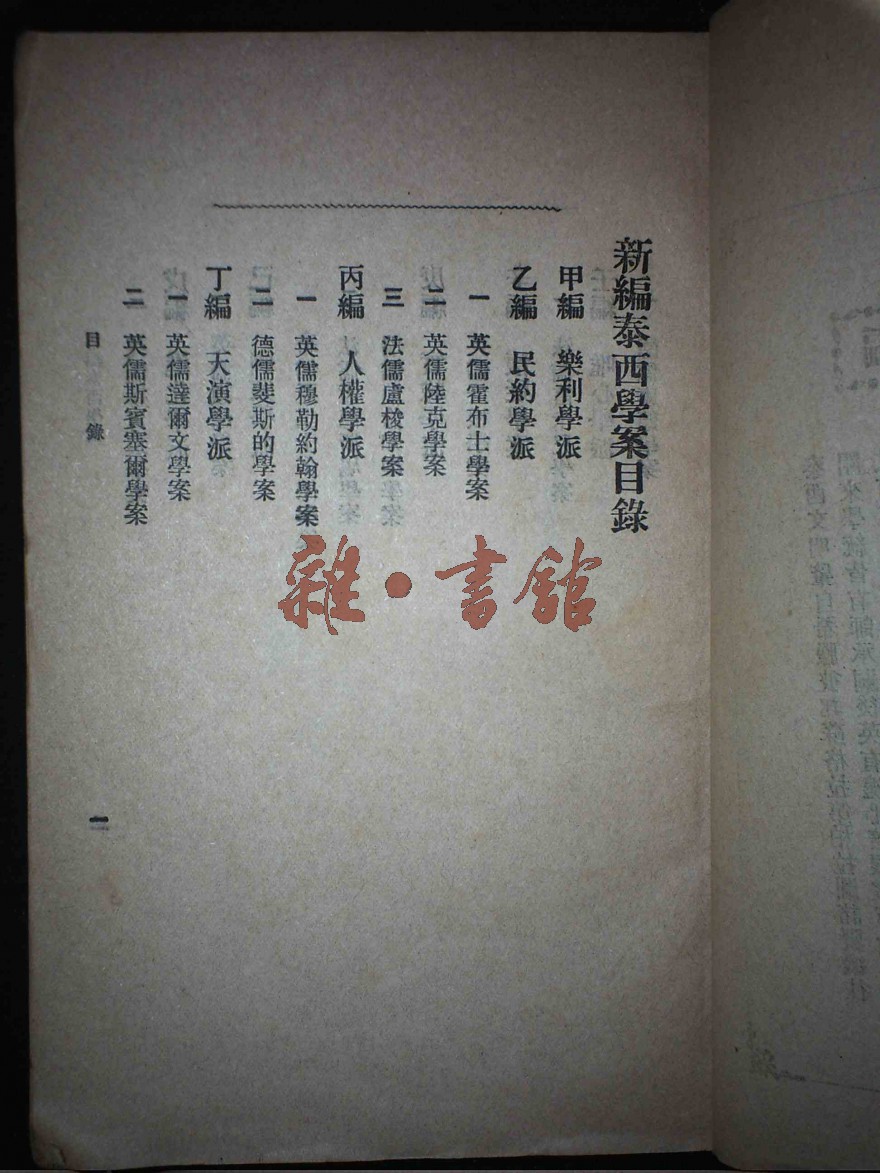 新編泰西學案目錄
甲編　樂利學派
乙編　民約學派
一　英儒霍布士學案
二　英儒陸克學案
三　法儒盧梭學案
丙編　人權學派
一　英儒穆勒約翰學案
二　德儒斐斯的學案
丁編　天演學派
一　英儒達爾文學案
二　英儒斯賓塞爾學案
目錄
雜·書館